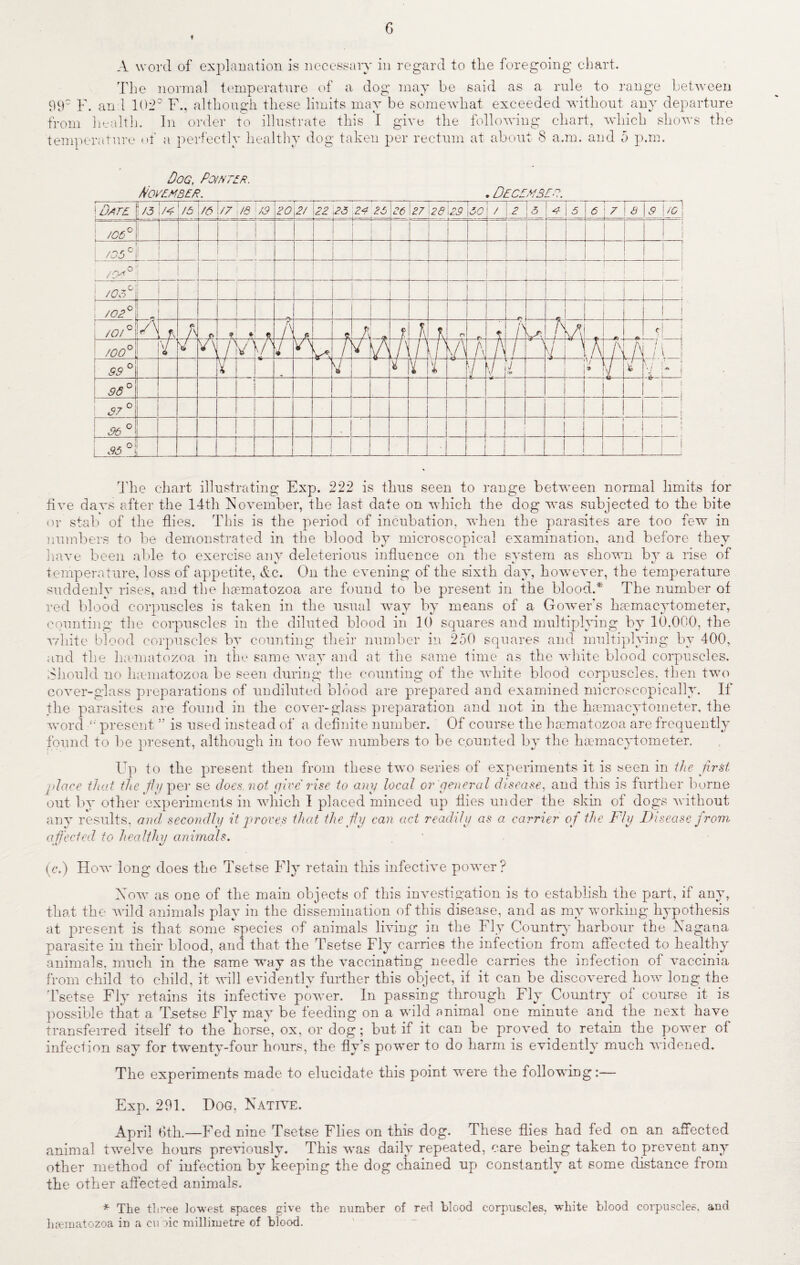 6
A word of explanation is necessary in regard to the foregoing chart.
The normal temperature of a dog may be said as a rule to range between
99° F. and 102° F., although these limits may be somewhat exceeded without any departure
from health. In order to illustrate this I give the following chart, which shows the
temperature of a perfectly healthy dog taken per rectum at about 8 a.m. and 5 p.m.
DOG, POINTER.
NOVEMBER. . DECEMBER.
DATE 13 14 15 16 17 18 19 20 21 22 23 24 25 26 27 28 29 30 1 2 3 4 5 6 7 8 9 10
106°
105°
104°
103°
102°
101°
100°
99°
98°
97°
96°
95°
The chart illustrating Exp. 222 is thus seen to range between normal limits for
five days after the 14th November, the last date on which the dog was subjected to the bite
or stab of the flies. This is the period of incubation, when the parasites are too few in
numbers to be demonstrated in the blood by microscopical examination, and before they
have been able to exercise any deleterious influence on the system as shown by a rise of
temperature, loss of appetite, &c. On the evening of the sixth day, however, the temperature
suddenly rises, and the hæmatozoa are found to be present in the blood.* The number of
red blood corpuscles is taken in the usual way by means of a Gower's hæmacytometer,
counting the corpuscles in the diluted blood in 10 squares and multiplying by 10,000, the
white blood corpuscles by counting their number in 250 squares and multiplying by 400,
and the hæmatozoa in the same way and at the same time as the white blood corpuscles.
Should no hæmatozoa be seen during the counting of the white blood corpuscles, then two
cover-glass preparations of undiluted blood are prepared and examined microscopically. If
the parasites are found in the cover-glass preparation and not in the hæmacytometer, the
word "present" is used instead of a definite number. Of course the hæmatozoa are frequently
found to be present, although in too few numbers to be counted by the hæmacytometer.
Up to the present then from these two series of experiments it is seen in the first
place that the fly per se does not give rise to any local or general disease, and this is further borne
out by other experiments in which I placed minced up flies under the skin of dogs without
any results, and secondly it proves that the fly can act readily as a carrier of the Fly Disease from
affected to healthy animals.
(c.) How long does the Tsetse Fly retain this infective power?
Now as one of the main objects of this investigation is to establish the part, if any,
that the wild animals play in the dissemination of this disease, and as my working hypothesis
at present is that some species of animals living in the Fly Country harbour the Nagana
parasite in their blood, and that the Tsetse Fly carries the infection from affected to healthy
animals, much in the same way as the vaccinating needle carries the infection of vaccinia
from child to child, it will evidently further this object, if it can be discovered how long the
Tsetse Fly retains its infective power. In passing through Fly Country of course it is
possible that a Tsetse Fly may be feeding on a wild animal one minute and the next have
transferred itself to the horse, ox, or dog; but if it can be proved to retain the power of
infection say for twenty-four hours, the fly's power to do harm is evidently much widened.
The experiments made to elucidate this point were the following:—
Exp. 291. DOG, NATIVE.
April 6th.—Fed nine Tsetse Flies on this dog. These flies had fed on an affected
animal twelve hours previously. This was daily repeated, care being taken to prevent any
other method of infection by keeping the dog chained up constantly at some distance from
the other affected animals.
* The three lowest spaces give the number of red blood corpuscles, white blood corpuscles, and
hæmatozoa in a cubic millimetre of blood.